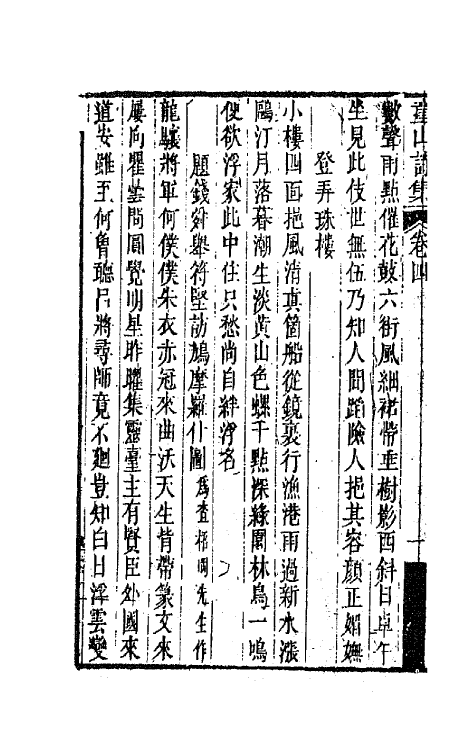 堇山詩集 卷四
數聲雨點催花鼓六街風細裙帶垂樹影西斜日卓午
坐見此伎世無伍乃知人間蹈險人挹其容顏正媚嫵
登弄珠樓
小樓四面挹風清真箇船從鏡裏行漁港雨過新水漲
鷗汀月落暮潮生淡黄山色螺千點深綠園林鳥一鳴
便欲浮家此中住只愁尚自絆浮名
題錢舜舉符堅訪鳩摩羅什圖為查梧岡先生作
龍驤將軍何僕僕朱衣赤冠來曲沃天生背帶篆文來
屢向瞿曇問圓覺明星昨曜集靈臺主有賢臣外國來
道安雖至何曾聽呂將尋師竟不廻豈知白日浮雲變